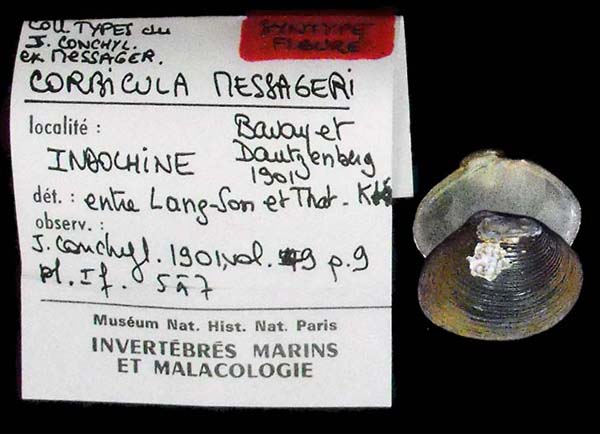 Coll. TYPES du
J. CONCHYL.
ex MESSAGER.
SYNTYPE
FIGURÉ
CORBICULA MESSAGERI
localité :
Bavay et
Dautzenberg
1901
INDOCHINE
dét. : entre Lang-Son et That-Khé
observ. :
J. Conchyl. 1901, vol. 49 p.9
pl. I f. 5 à 7
Muséum Nat. Hist. Nat. Paris
INVERTÉBRÉS MARINS
ET MALACOLOGIE